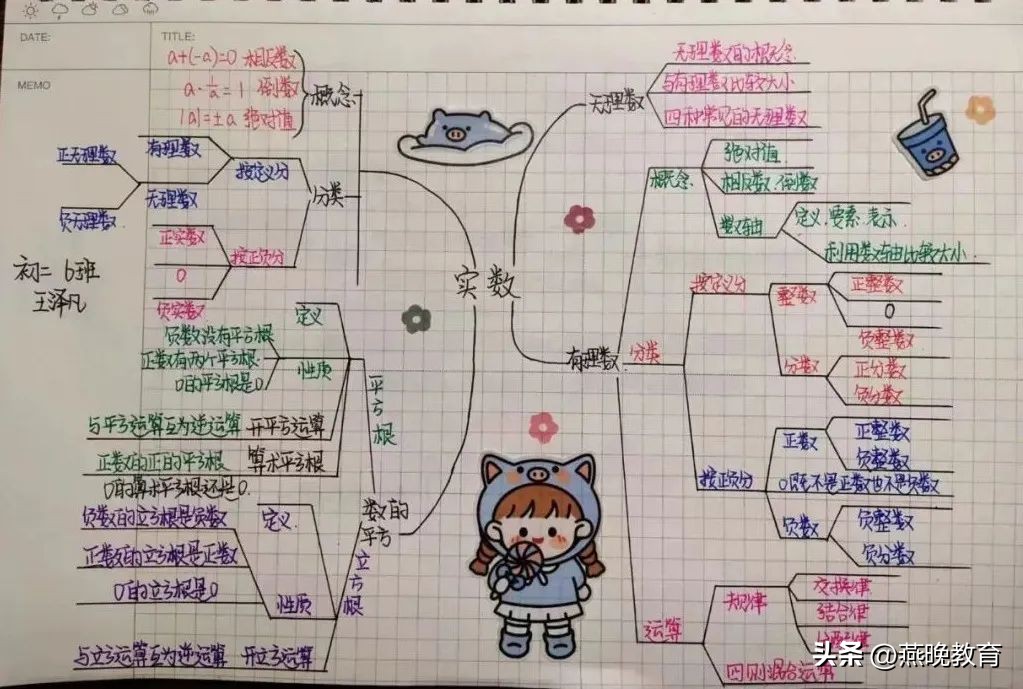 DATE:
TITLE:
MEMO
实数
概念
a+(-a)=0 相反数
a·1/a=1 倒数
|a|=±a 绝对值
分类
按定义分
有理数
无理数
正无理数
负无理数
按正负分
正实数
0
负实数
初二 6班
王泽凡
数的
平方
平方根
定义
性质
负数没有平方根
正数有两个平方根
0的平方根是0
开平方运算
与平方运算互为逆运算
算术平方根
正数的正的平方根
0的算术平方根还是0.
立方根
定义.
性质
负数的立方根是负数
正数的立方根是正数
0的立方根是0
开立方运算
与立方运算互为逆运算
无理数
无理数的概念
与有理数比较大小
四种常见的无理数
有理数
概念
绝对值
相反数.倒数
数轴
定义.要素.表示.
利用数轴比较大小.
分类
按定义分
整数
正整数
0
负整数
分数
正分数
负分数
按正负分
正数
正整数
负整数
0既不是正数也不是负数
负数
负整数
负分数
运算
规律
交换律
结合律
四则混合运算
头条 @燕晚教育